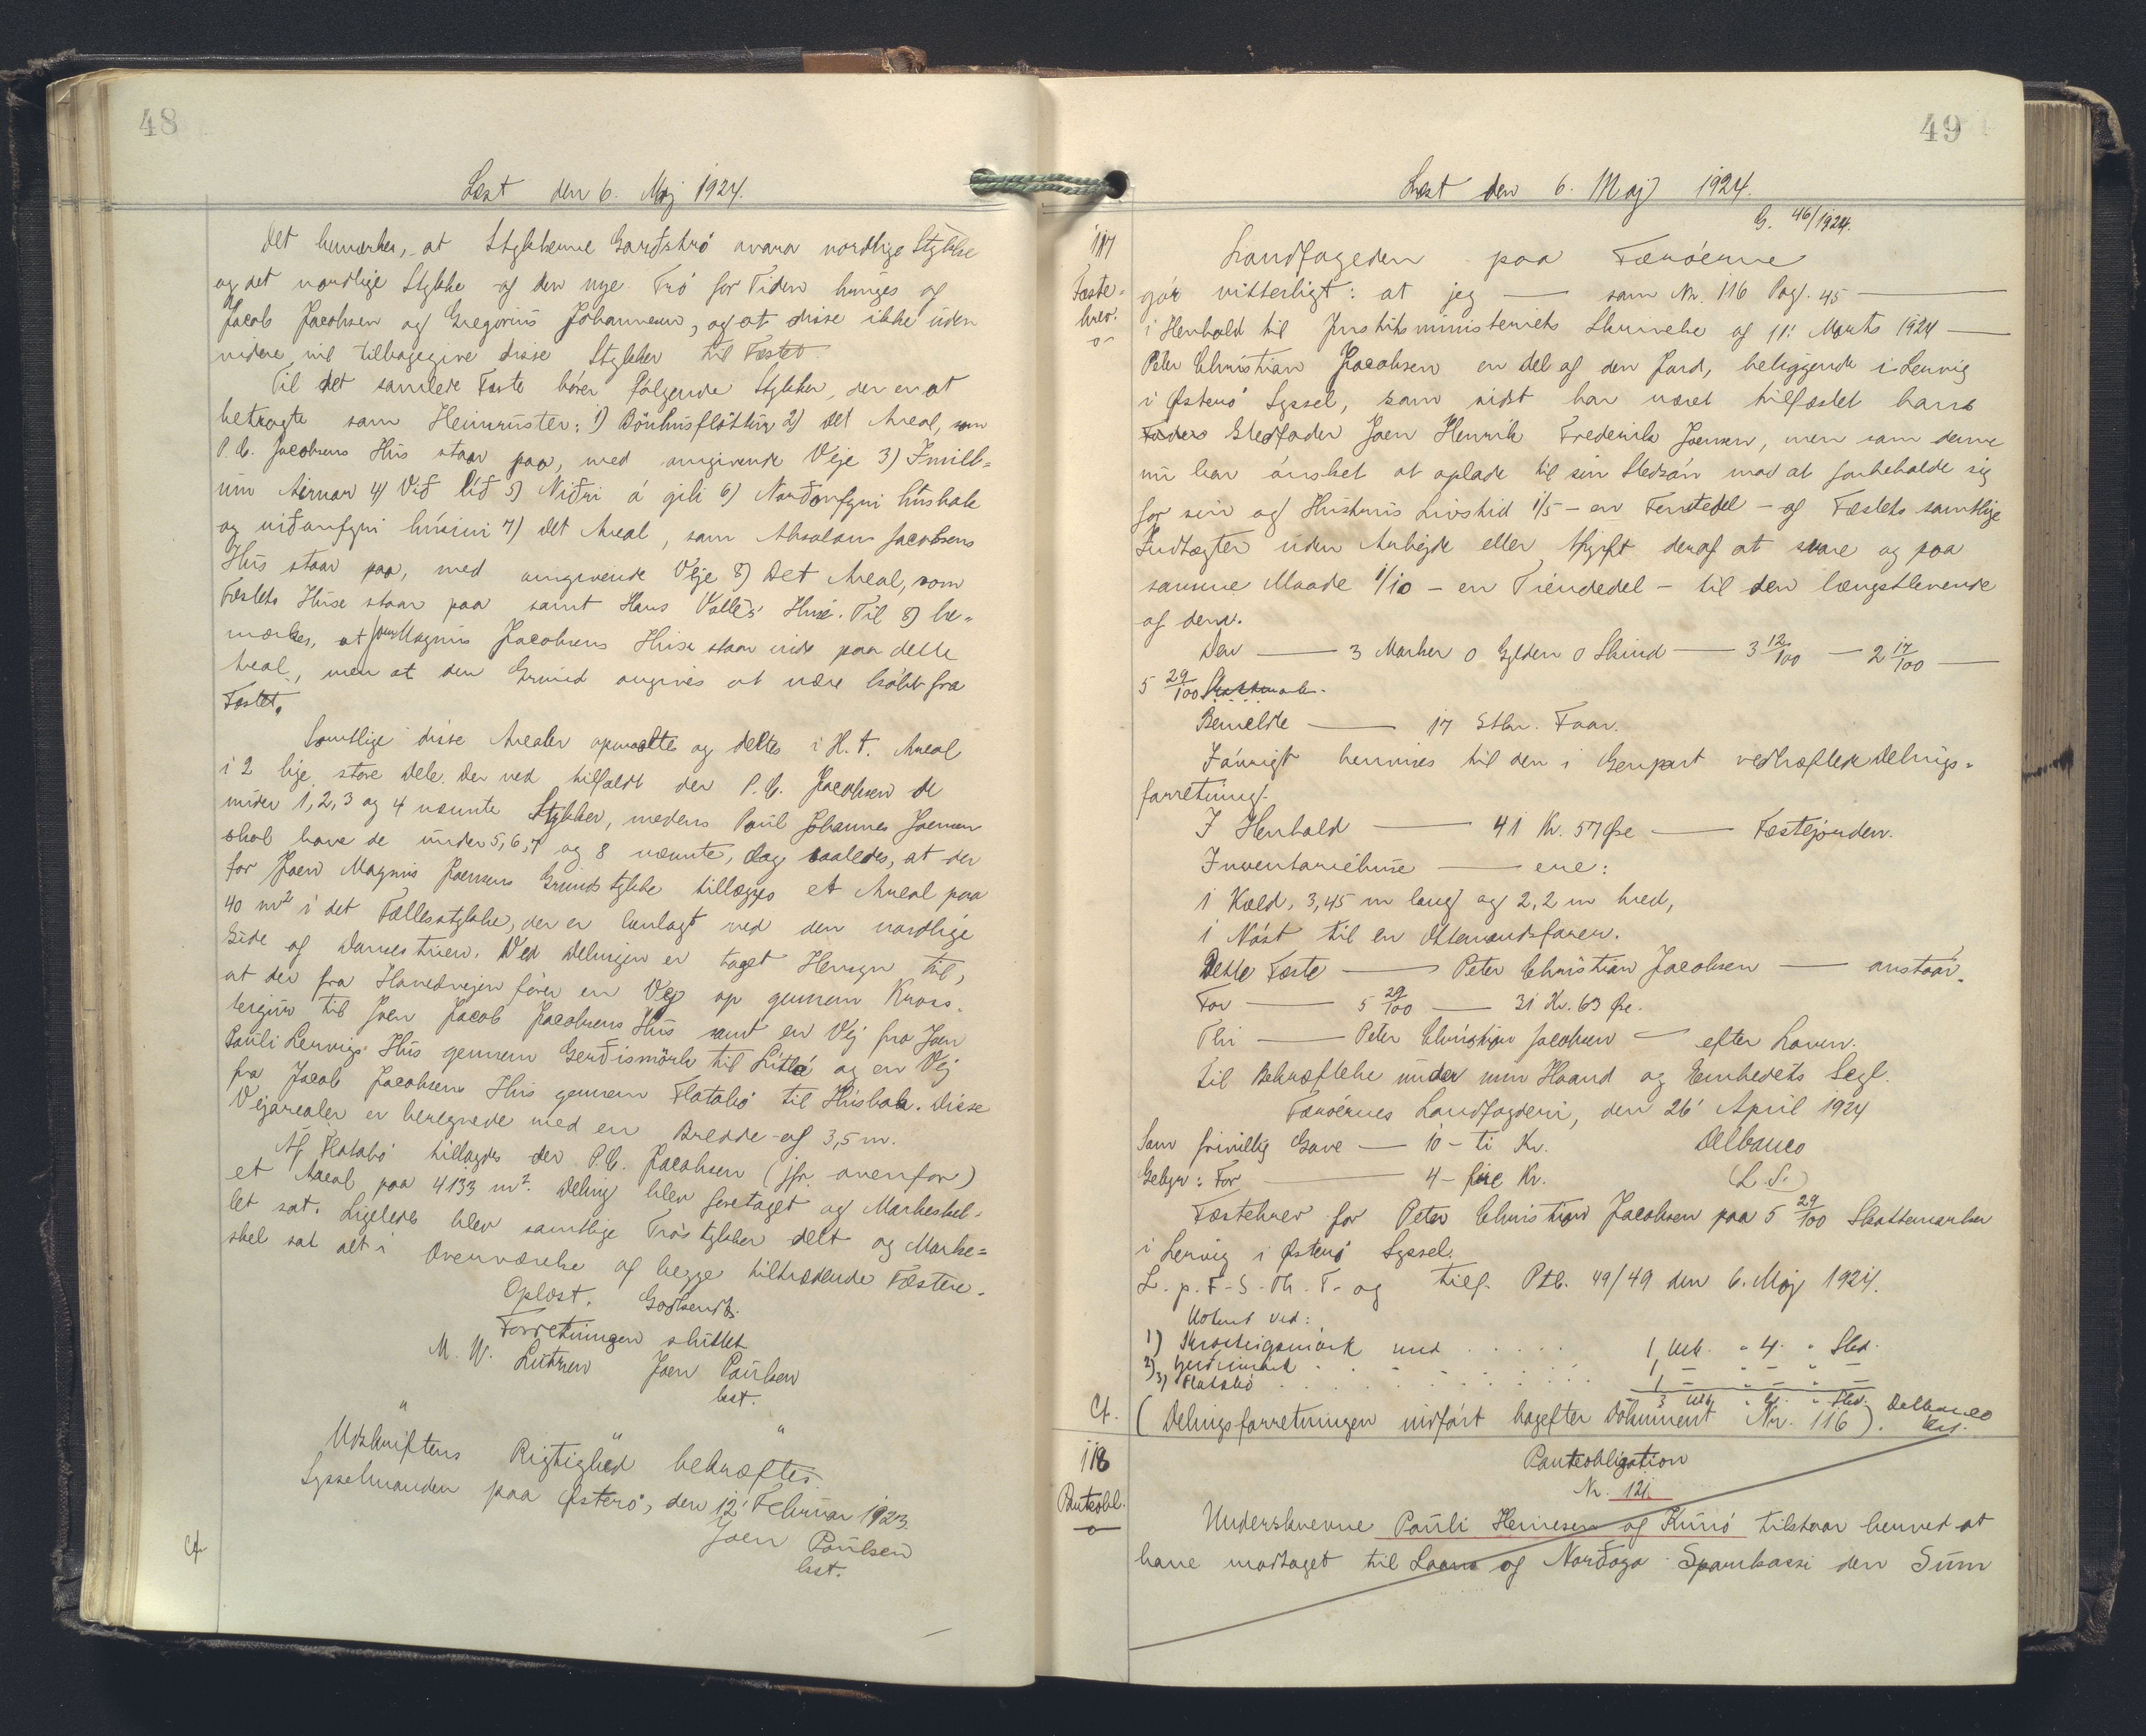 48
Læst den 6. Maj 1924.
Det bemærkes, at Stykkerne Garðstrø ovara nordlige Stykke
og det nordlige Stykke af den nye Trø for Tiden bruges af
Jacob Jacobsen og Gregorius Johannesen, og at disse ikke uden
videre vil tilbagegive disse Stykker til Fæstet.
Til det samlede Fæste hører følgende Stykker, der er at
betragte som Heimrúster: 1) Bönhusfløttur 2) Det Areal, som
P. C. Jacobsens Hus staar paa, med omgivende Veje 3) Imill-
um Áirnar 4) Við Lið 5) Niðri á gili 6) Norðanfyri húsbak
og niðanfyri húsini 7) Det Areal, som Absalon Jacobsens
Hus staar paa, med omgivende Veje 8) Det Areal, som
Fæstets Huse staar paa samt Hans Valles' Hus. Til 8) be-
mærkes, at Joen Magnus Jacobsens Huse staar inde paa dette
Areal, men at den Grund angives at være købt fra
Fæstet.
Samtlige disse Arealer opmaaltes og deltes i H. t. Areal
i 2 lige store Dele. Der ved tilfaldt der P. C. Jacobsen de
under 1, 2, 3 og 4 nævnte Stykker, medens Poul Johannes Joensen
skal have de under 5, 6, 7 og 8 nævnte, dog saaledes, at der
for Joen Magnus Joensens Grundstykke tillægges et Areal paa
40 m² i det Fællesstykke, der er henlagt ved den nordlige
Side af Dansestuen. Ved Delingen er taget Hensyn til,
at der fra Hovedvejen fører en Vej op gennem Kross-
teigur til Joen Jacob Jacobsens Hus, samt en Vej fra Joen
Pauli Lervigs Hus gennem Gerðismørk til Litla og en Vej
fra Jacob Jacobsens Hus gennem Flatabø til Húsbak. Disse
Vejarealer er beregnede med en Bredde af 3,5 m.
Af Flatabø tillagdes der P. C. Jacobsen (jfr. ovenfor)
et Areal paa 4133 m². Deling blev foretaget og Markeskel-
let sat. Ligeledes blev samtlige Trøstykker delt og Marke-
skel sat alt i Overværelse af begge tiltrædende Fæstere.
Oplæst. Godkendt.
Forretningen sluttet
M. W. Lützen Joen Poulsen
kst.
" " "
Udskriftens Rigtighed bekræftes
Sysselmanden paa Østerø, den 12' Februar 1923.
Joen Poulsen
kst.
Cf.
49
Læst den 6. Maj 1924.
G. 46/1924.
117
Fæste-
brev.
Landfogeden paa Færøerne
gør vitterligt: at jeg — som Nr. 116 Pag. 45 —
i Henhold til Justitsministeriets Skrivelse af 11' Marts 1924 —
Peter Christian Jacobsen en Del af den Jord, beliggende i Lervig
i Østerø Syssel, som sidst har været tilfæstet hans
Faders Stedfader Joen Henrik Frederik Joensen, men som denne
nu har ønsket at oplade til sin Stedsøn mod at forbeholde sig
for sin og Hustrus Livstid 1/5 - en Femtedel - af Fæstets samtlige
Indtægter uden Arbejde eller Afgift deraf at svare og paa
samme Maade 1/10 - en Tiendedel - til den længstlevende
af dem.
Den — 3 Marker 0 Gylden 0 Skind — 3 12/100 — 2 17/100 —
5 29/100 Skattemark.
Bemeldte — 17 Stkr. Faar.
Iøvrigt henvises til den i Genpart vedhæftede Delings-
forretning.
I Henhold — 41 Kr. 57 Øre — Fæstejorden.
Inventariehuse — ere:
1 Kæld, 3,45 m lang og 2,2 m bred,
1 Nøst til en Ottemandsfarer.
Dette Fæste — Peter Christian Jacobsen — anstaar.
For — 5 29/100 — 31 Kr. 63 Øre.
Thi — Peter Christian Jacobsen — efter Loven.
Til Bekræftelse under min Haand og Embedets Segl.
Færøernes Landfogderi, den 26' April 1924
Som frivillig Gave — 10 - ti Kr. Delbanco
Gebyr: For — 4 - fire Kr. (L. S.)
Fæstebrev for Peter Christian Jacobsen paa 5 29/100 Skattemarker
i Lervig i Østerø Syssel.
L. p. F. - S. - Th. T. - og tilf. Ptb. 49/49 den 6. Maj 1924.
Noteret ved:
1) Krosteigsmørk med . . . . . 1 Mk. " 4 " Skd.
2) Gerdismørk . . . . . 1 — " — " —
3) Flatabø . . . . . 1 — " — " —
3 Mk. " G. " Skd.
Cf. (Delingsforretningen indført bagefter Dokument Nr. 116). Delbanco
kst.
118
Panteobl.
Panteobligation
Nr. 121.
Underskrevne Pauli Heinesen af Kunø tilstaar herved at
have modtaget til Laans af Norðoya Sparikassi den Sum